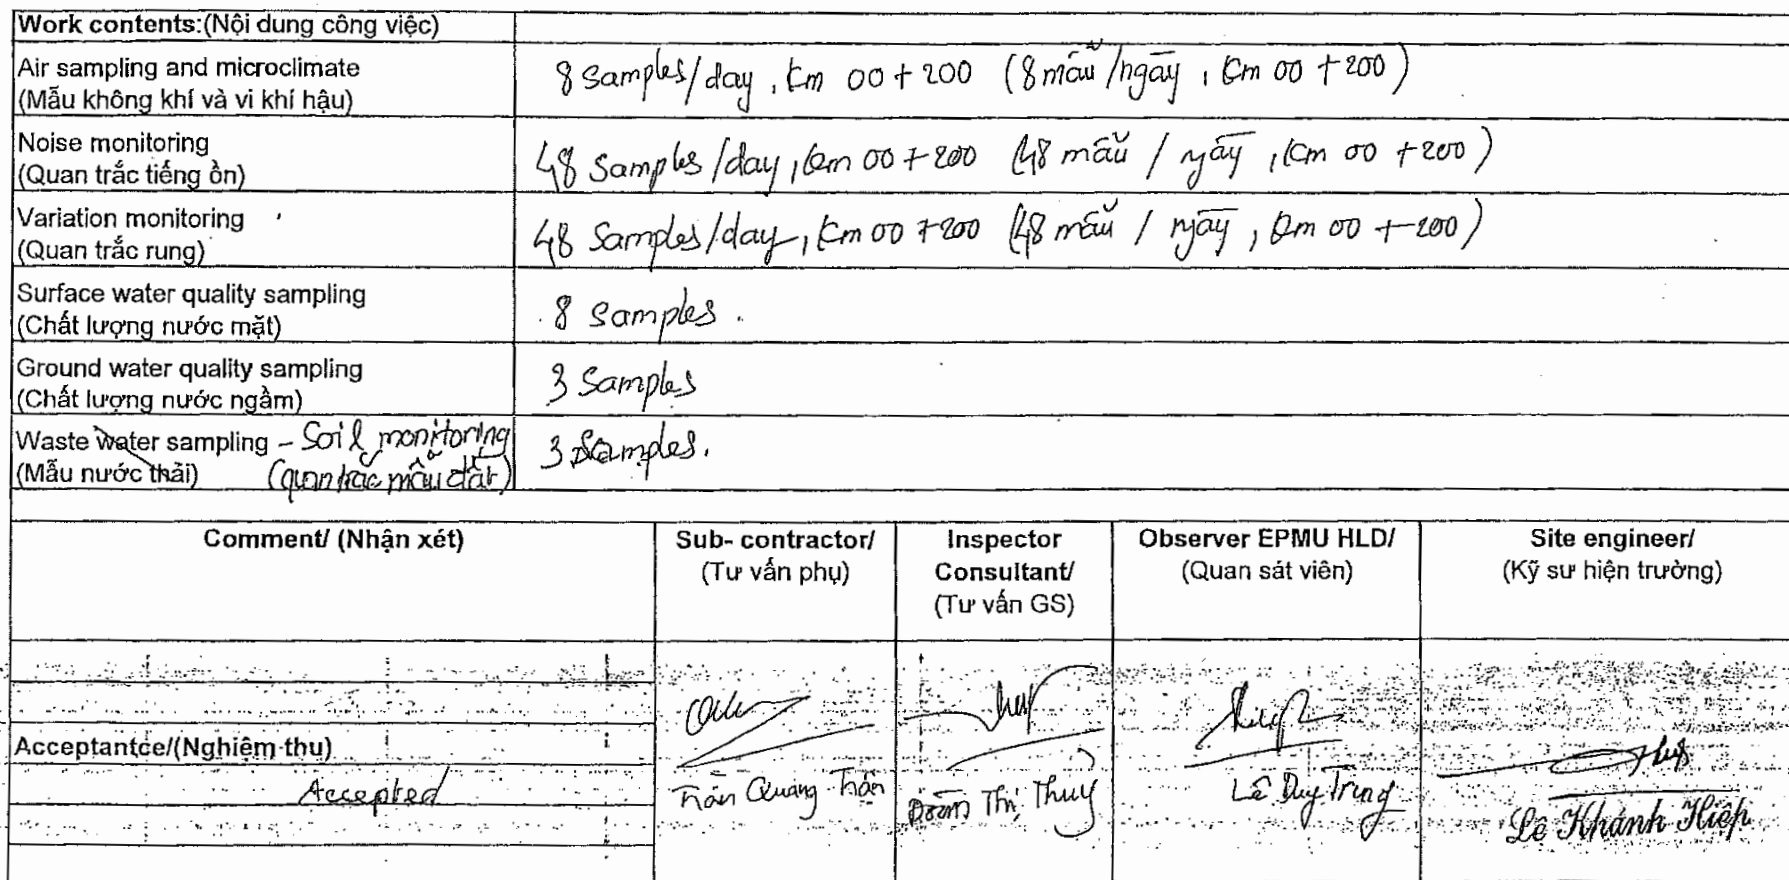 Work contents:(Nội dung công việc)
Air sampling and microclimate
(Mẫu không khí và vi khí hậu)
8 samples/day, km 00 + 200 (8 mẫu/ngày, km 00 + 200)
Noise monitoring
(Quan trắc tiếng ồn)
48 samples/day, km 00 + 200 (48 mẫu / ngày, km 00 + 200)
Variation monitoring
(Quan trắc rung)
48 samples/day, km 00 + 200 (48 mẫu / ngày, km 00 + 200)
Surface water quality sampling
(Chất lượng nước mặt)
8 samples.
Ground water quality sampling
(Chất lượng nước ngầm)
3 samples
Waste water sampling - Soil monitoring
(Mẫu nước thải) (quan trắc mẫu đất)
3 samples.
Comment/ (Nhận xét)
Sub- contractor/
(Tư vấn phụ)
Inspector
Consultant/
(Tư vấn GS)
Observer EPMU HLD/
(Quan sát viên)
Site engineer/
(Kỹ sư hiện trường)
Acceptantce/(Nghiệm thu)
Accepted
Trần Quang Trần
Đoàn Thị Thuỷ
Lê Duy Trung
Lê Khánh Hiệp